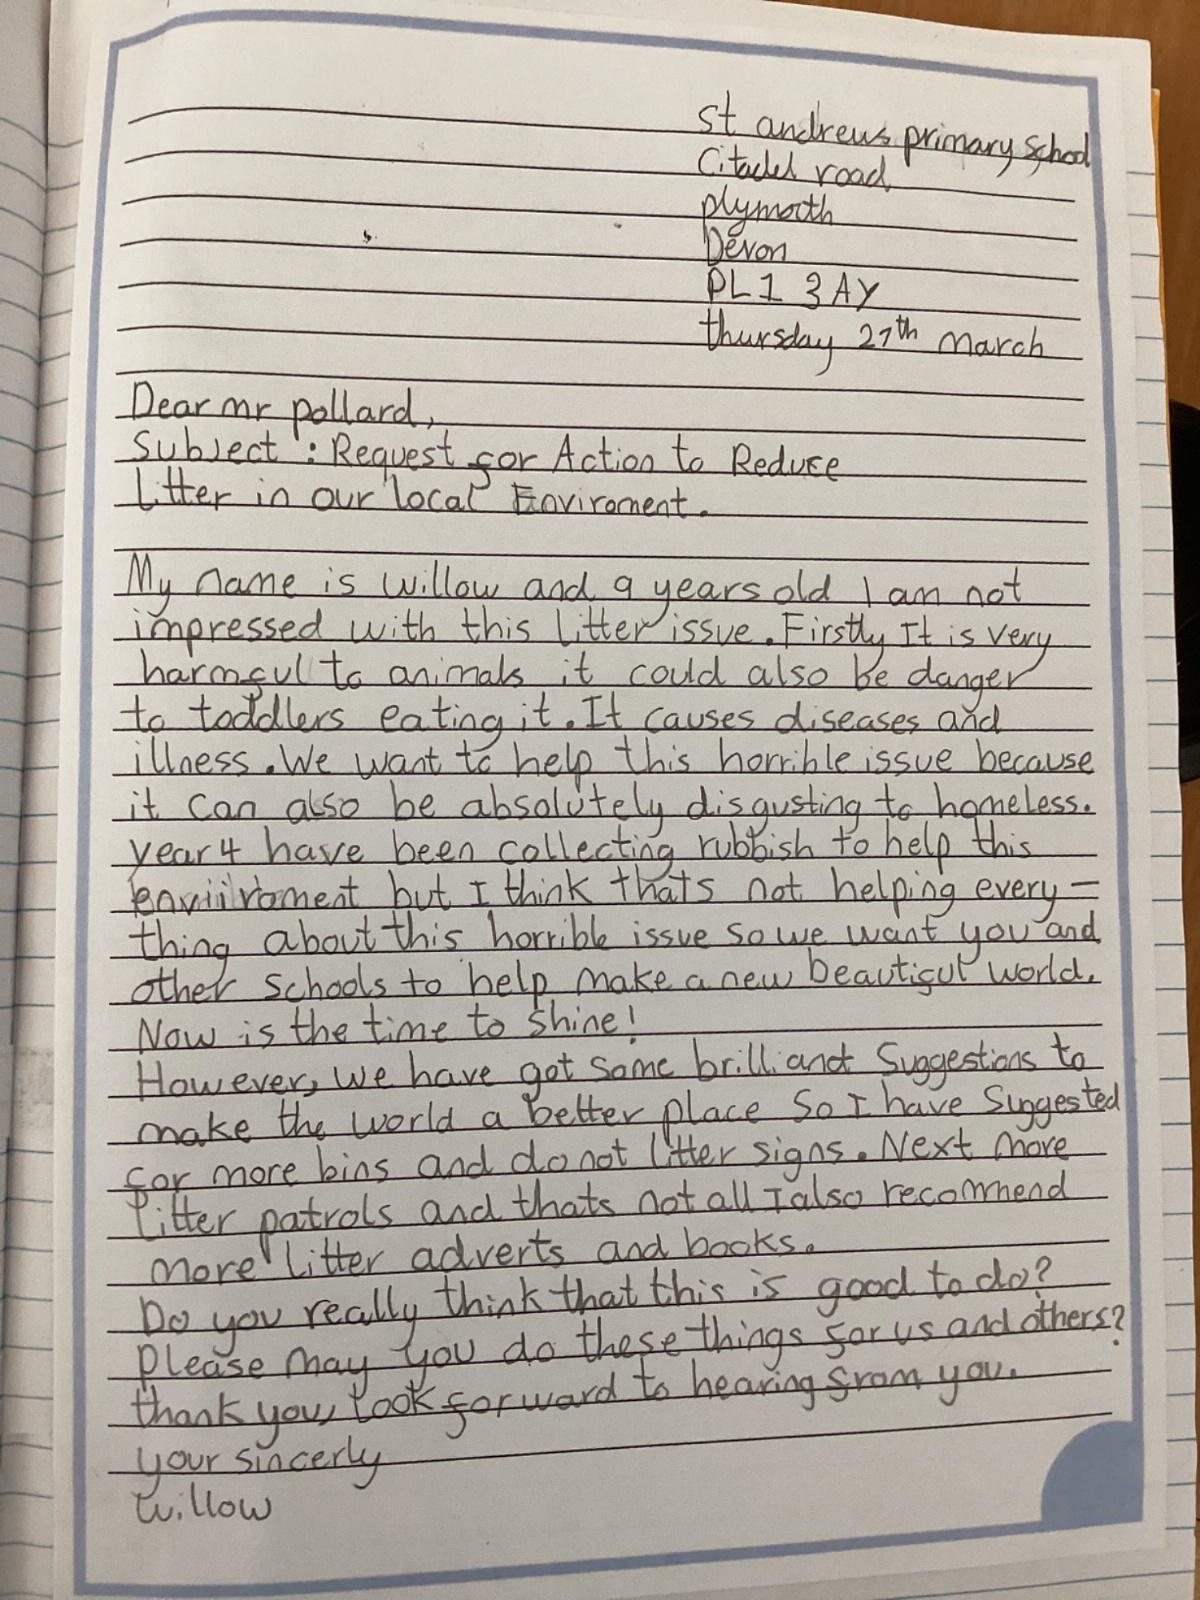 st andrews primary school
Citadel road
plymoth
Devon
PL1 3AY
thursday 27th march
Dear mr pollard,
Subject : Request for Action to Reduce
litter in our local Enviroment.
My name is willow and 9 years old I am not
impressed with this litter issue. Firstly It is very
harmful to animals it could also be danger
to toddlers eating it. It causes diseases and
illness. We want to help this horrible issue because
it can also be absolutely disgusting to homeless.
year 4 have been collecting rubbish to help this
enviiroment but I think thats not helping every-
thing about this horrible issue so we want you and
other schools to help make a new beautiful world.
Now is the time to shine!
However, we have got some brilliant suggestions to
make the world a better place so I have suggested
for more bins and do not litter signs. Next more
litter patrols and thats not all I also recommend
more litter adverts and books.
Do you really think that this is good to do?
Please may you do these things for us and others?
thank you, look forward to hearing from you.
your sincerly
willow